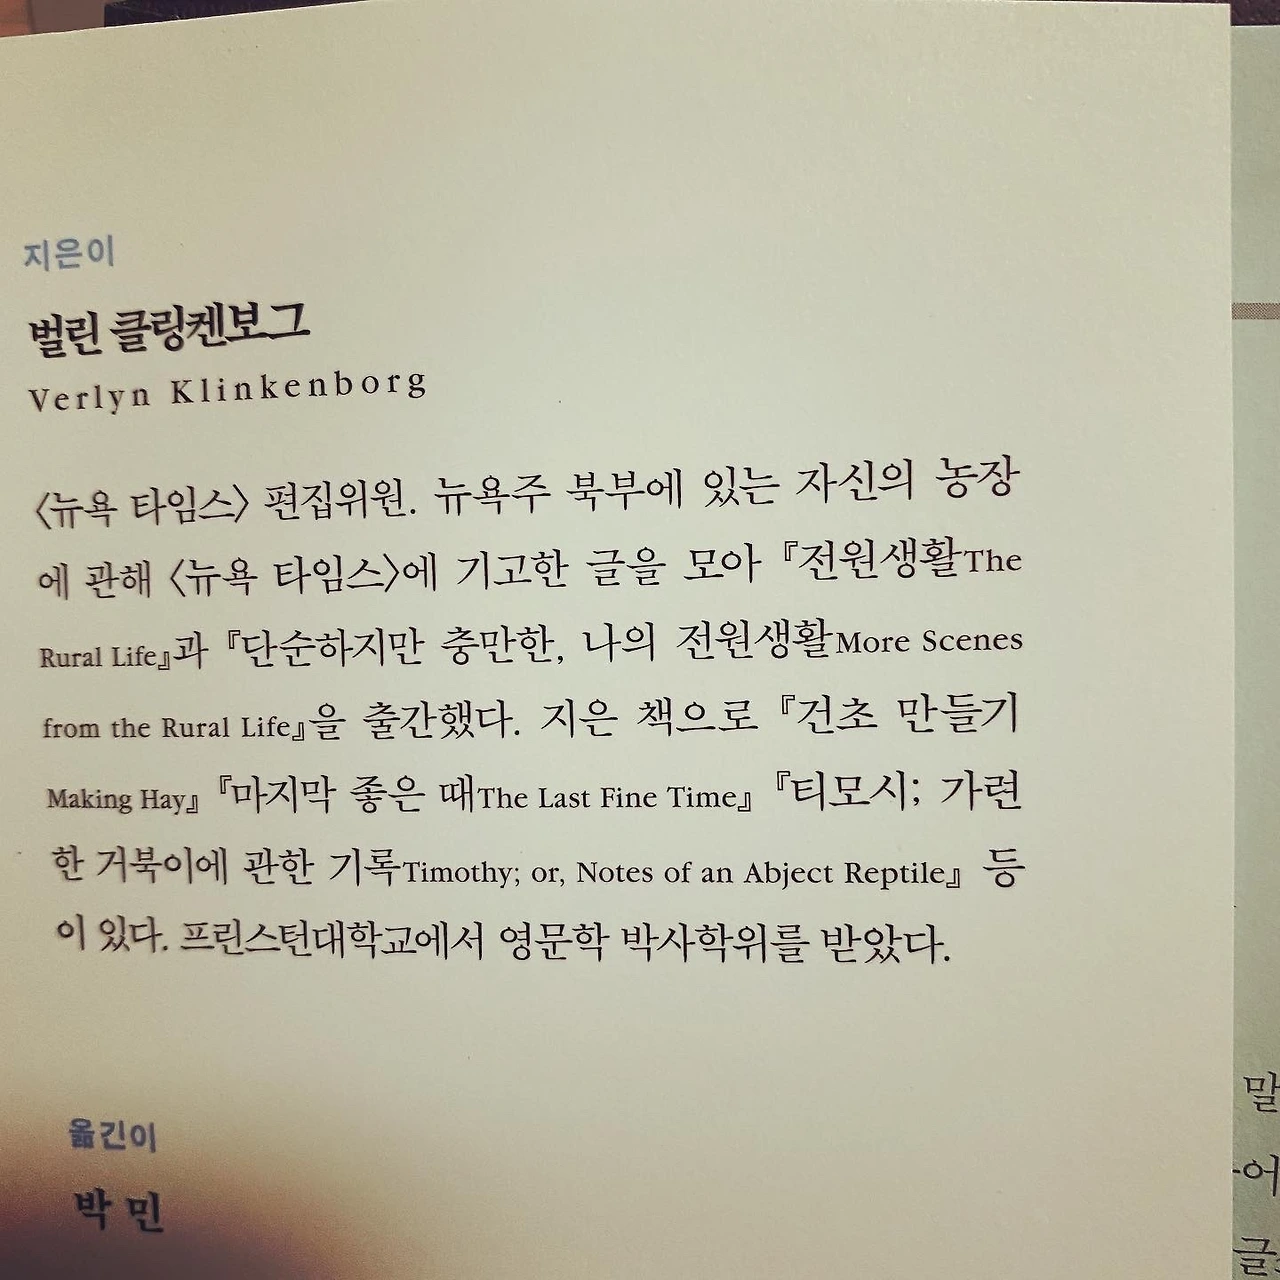 지은이
벌린 클링켄보그
Verlyn Klinkenborg
〈뉴욕 타임스〉 편집위원. 뉴욕주 북부에 있는 자신의 농장
에 관해 〈뉴욕 타임스〉에 기고한 글을 모아 『전원생활The
Rural Life』과 『단순하지만 충만한, 나의 전원생활More Scenes
from the Rural Life』을 출간했다. 지은 책으로 『건초 만들기
Making Hay』 『마지막 좋은 때The Last Fine Time』 『티모시; 가련
한 거북이에 관한 기록Timothy; or, Notes of an Abject Reptile』 등
이 있다. 프린스턴대학교에서 영문학 박사학위를 받았다.
옮긴이
박 민
말
어
글